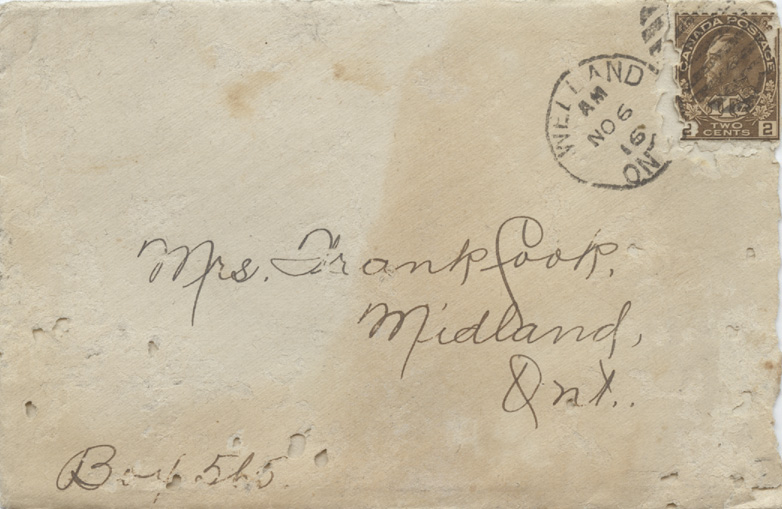 CANADA POSTAGE
2 TWO CENTS 2
WELLAND
AM
NO 6
16
ON
Mrs. Frank Cook,
Midland,
Ont..
Box 565.